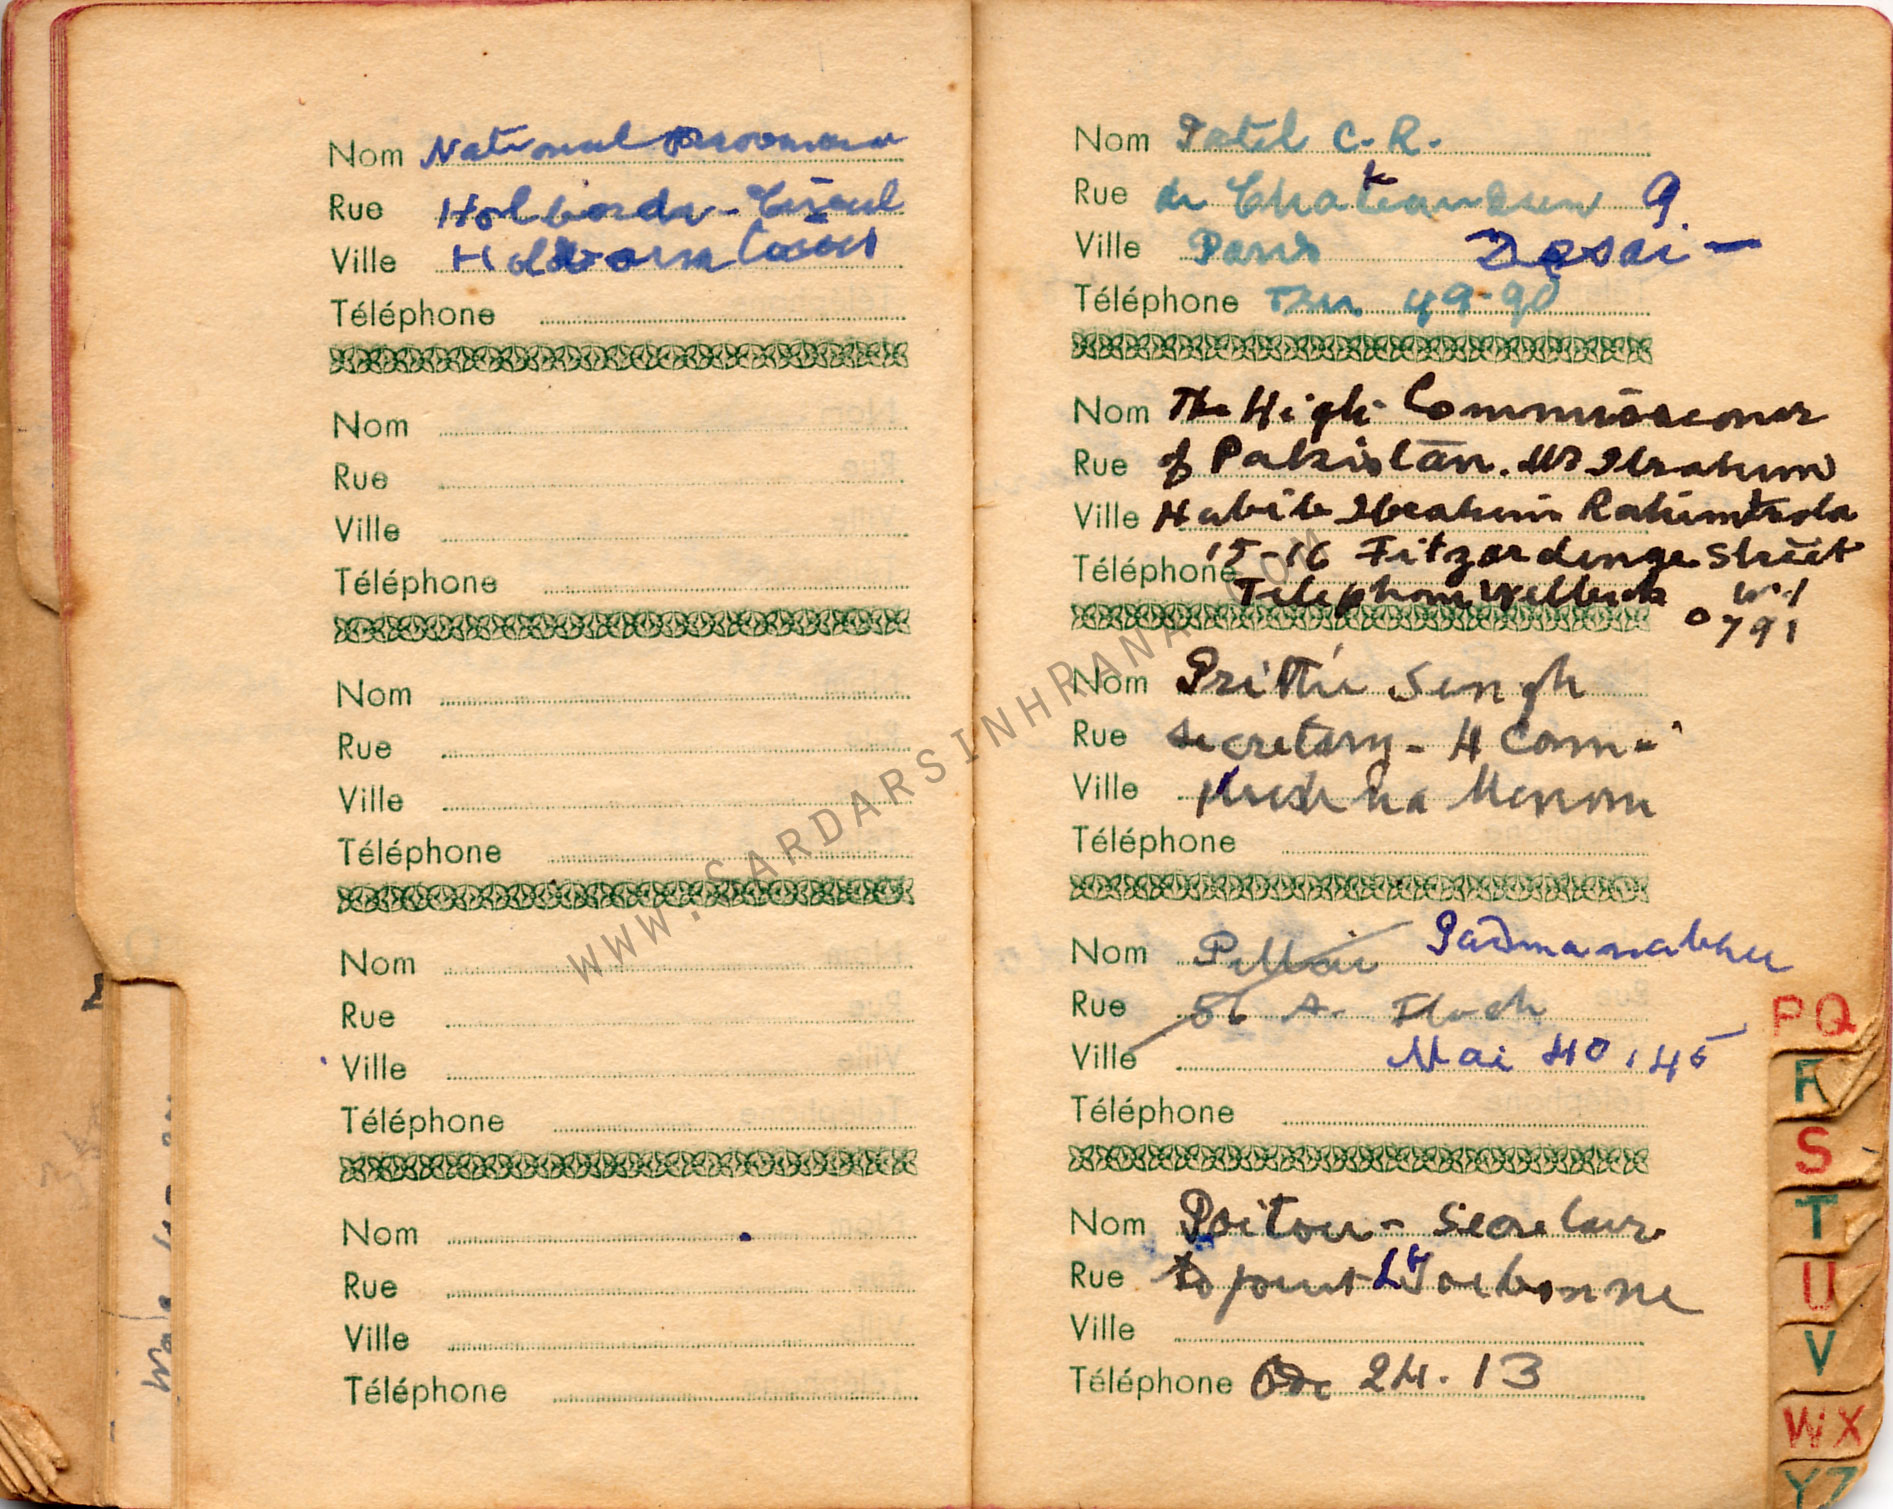 Nom National
Rue Holborn - Circus
Ville Holborn
Téléphone
Nom
Rue
Ville
Téléphone
Nom
Rue
Ville
Téléphone
Nom
Rue
Ville
Téléphone
Nom
Rue
Ville
Téléphone
Nom Patel C. R.
Rue de Chateaudun 9
Ville Paris Desai -
Téléphone 49-90
Nom The High Commissioner
Rue of Pakistan. Mr Ibrahim
Ville Habib Ibrahim Rahimtoola
15-16 Fitzardinge Street
Téléphone
Telephone Welbeck
0791
Nom Prithi Singh
Rue Secretary - H Com -
Ville Krishna Menon
Téléphone
Nom Pillai Padmanabha
Rue 56 A. Floch
Ville Mai 40.45
Téléphone
Nom Poitou - Secretaire
Rue Sorbonne
Ville
Téléphone Ode 24.13
PQ
R
S
T
U
V
WX
YZ
WWW.SARDARSINHRANA.COM